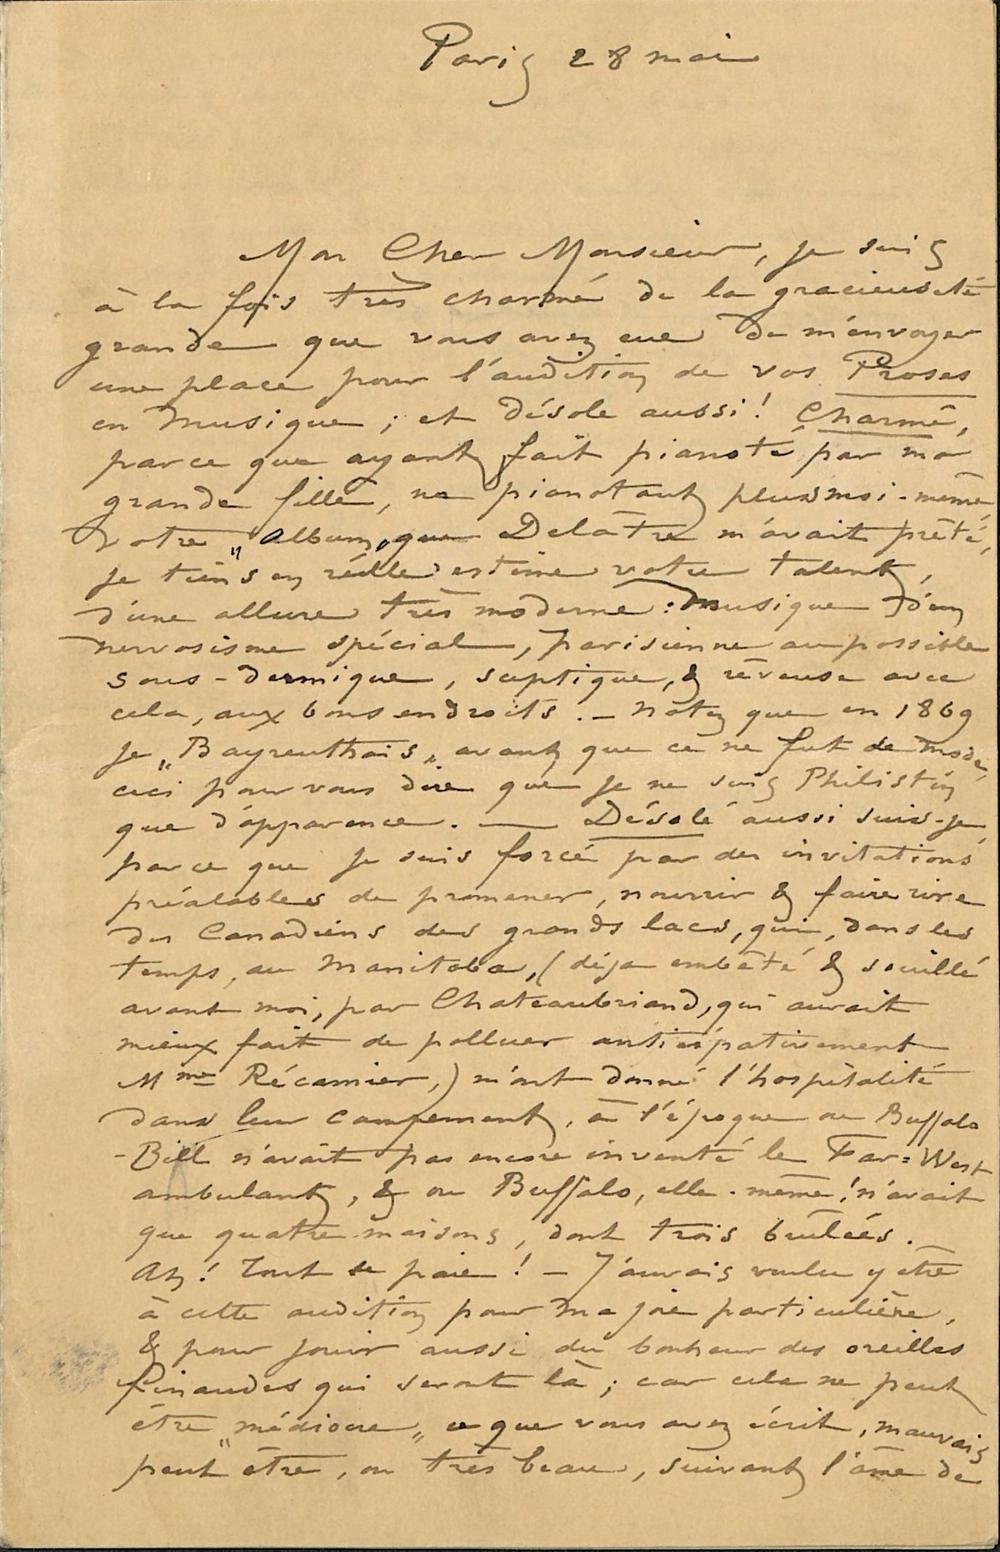 Paris 28 mai
Mon Cher Monsieur, je suis
à la fois très charmé de la gracieuseté
grande que vous avez eue de m'envoyer
une place pour l'audition de vos Proses
en Musique ; et désolé aussi ! Charmé,
parce que ayant fait pianoté par ma
grande fille, ne pianotant plus moi-même,
votre "Album" que Delâtre m'avait prêté,
je tiens en réelle estime votre talent,
d'une allure très moderne : musique d'un
nervosisme spécial, parisienne au possible
sous-dermique, sceptique, & rêveuse avec
cela, aux bons endroits. — Notez que en 1869
je "Bayreuthais" avant que ce ne fut de mode,
ceci pour vous dire que je ne suis Philistin
que d'apparence. — Désolé aussi suis-je,
parce que je suis forcé par des invitations
préalables de promener, nourrir & faire rire
des Canadiens des grands lacs, qui, dans les
temps, au Manitoba, (déja embêté & souillé
avant moi, par Chateaubriand, qui aurait
mieux fait de polluer anticipativement
Mme Récamier,) m'ont donné l'hospitalité
dans leur campement, à l'époque ou Buffalo
-Bill n'avait pas encore inventé le Far=West
ambulant, & ou Buffalo, elle-même ! n'avait
que quatre maisons, dont trois brûlées.
Ah ! Tout se paie ! — J'aurais voulu y être
à cette audition pour ma joie particulière,
& pour jouir aussi du bonheur des oreilles
finaudes qui seront là ; car cela ne peut
être "médiocre" ce que vous avez écrit, mauvais
peut être, ou très beau, suivant l'âme de